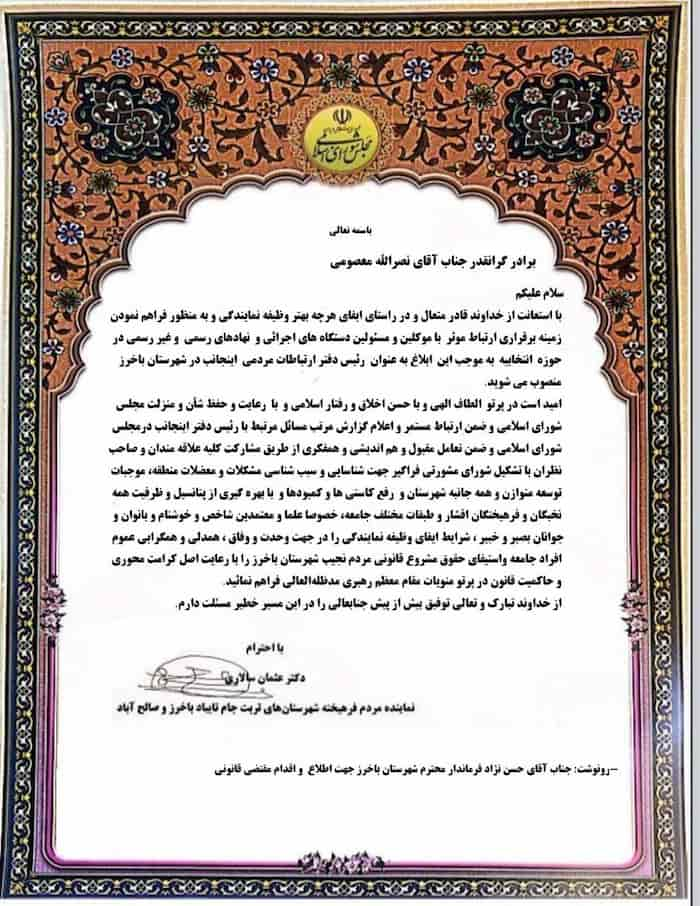 مجلس شورای اسلامی
باسمه تعالی
برادر گرانقدر جناب آقای نصرالله معصومی
سلام علیکم
با استعانت از خداوند قادر متعال و در راستای ایفای هرچه بهتر وظیفه نمایندگی و به منظور فراهم نمودن
زمینه برقراری ارتباط موثر با موکلین و مسئولین دستگاه های اجرائی و نهادهای رسمی و غیر رسمی در
حوزه انتخابیه به موجب این ابلاغ به عنوان رئیس دفتر ارتباطات مردمی اینجانب در شهرستان باخرز
منصوب می شوید.
امید است در پرتو الطاف الهی و با حسن اخلاق و رفتار اسلامی و با رعایت و حفظ شأن و منزلت مجلس
شورای اسلامی و ضمن ارتباط مستمر و اعلام گزارش مرتب مسائل مرتبط با رئیس دفتر اینجانب درمجلس
شورای اسلامی و ضمن تعامل مقبول و هم اندیشی و همفکری از طریق مشارکت کلیه علاقه مندان و صاحب
نظران با تشکیل شورای مشورتی فراگیر جهت شناسایی و سبب شناسی مشکلات و معضلات منطقه، موجبات
توسعه متوازن و همه جانبه شهرستان و رفع کاستی ها و کمبودها و با بهره گیری از پتانسیل و ظرفیت همه
نخبگان و فرهیختگان اقشار و طبقات مختلف جامعه، خصوصا علما و معتمدین شاخص و خوشنام و بانوان و
جوانان بصیر و خبیر ، شرایط ایفای وظیفه نمایندگی را در جهت وحدت و وفاق ، همدلی و همگرایی عموم
افراد جامعه واستیفای حقوق مشروع قانونی مردم نجیب شهرستان باخرز را با رعایت اصل کرامت محوری
و حاکمیت قانون در پرتو منویات مقام معظم رهبری مدظله‌العالی فراهم نمائید.
از خداوند تبارک و تعالی توفیق بیش از پیش جنابعالی را در این مسیر خطیر مسئلت دارم.
با احترام
دکتر عثمان سالاری
نماینده مردم فرهیخته شهرستان‌های تربت جام تایباد باخرز و صالح آباد
--رونوشت: جناب آقای حسن نژاد فرماندار محترم شهرستان باخرز جهت اطلاع و اقدام مقتضی قانونی